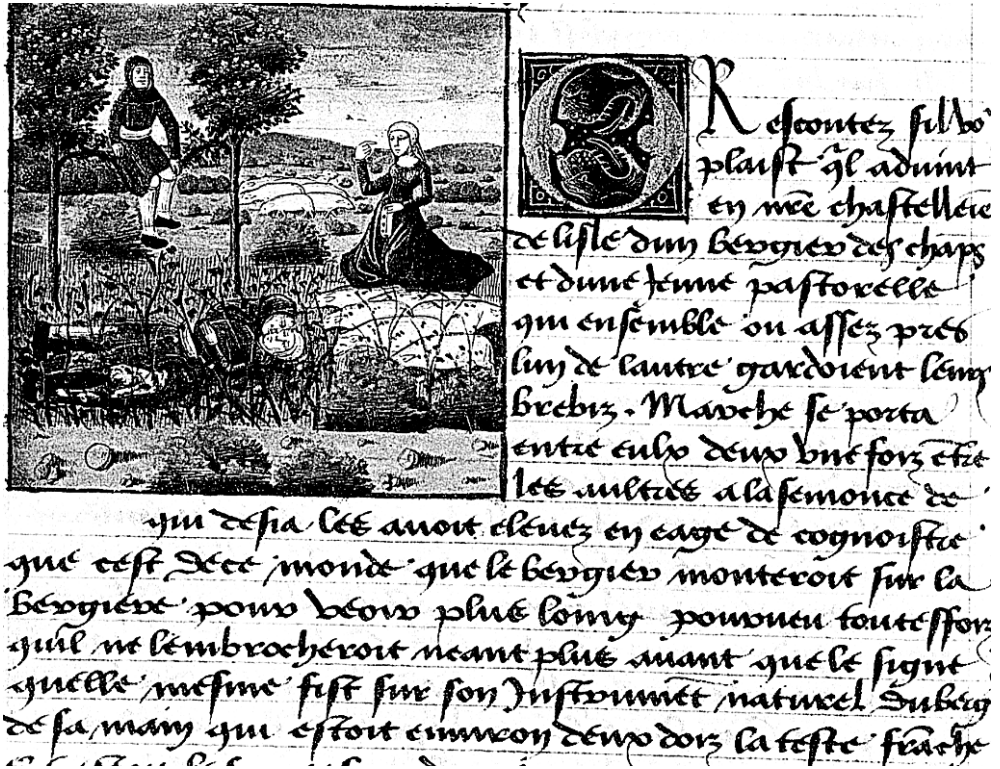 OR escoutez sil vo9
plaist ql̃ aduint
en nr̃e chastelleie
de lisle dun bergier des chāps
et dune Jenne pastorelle
qui ensemble ou assez pres
lun de lautre gardoient leurs
brebiz . Marche se porta
entre eulx deux vne foiz ētre
les aultres a la semonce de
qui desia les auoit eleuez en eage de cognoistre
que cest de ce monde que le bergier monteroit sur la
bergiere pour veoir plus loing pourueu touteffoiz
quil ne lembrocheroit neant plus auant que le signe
quelle mesme fist sur son Instrumēt naturel du berg
de sa main qui estoit enuiron deux doiz la teste frāche